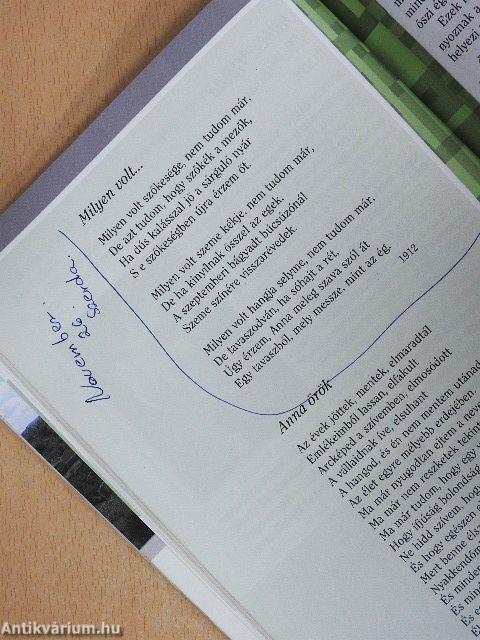 Milyen volt...
Milyen volt szőkesége, nem tudom már.
De azt tudom, hogy szőkék a mezők,
Ha dús kalásszal jő a sárguló nyár
S e szőkeségben újra érzem őt.
Milyen volt szeme kékje, nem tudom már,
De ha kinyílnak ősszel az egek,
A szeptemberi bágyadt búcsúzónál
Szeme színére visszarévedek.
Milyen volt hangja selyme, nem tudom már,
De tavaszodván, ha sóhajt a rét,
Úgy érzem, Anna meleg szava szól át
Egy tavaszból, mely messze, mint az ég.
1912
November
26
Szerda.
Anna örök
Az évek jöttek, mentek, elmaradtál
Emlékeimből lassan, elfakult
Arcképed a szívemben, elmosódott
A vállaidnak íve, elsuhant
A hangod, és én nem mentem utánad
Az élet egyre mélyebb erdejében.
Ma már nyugodtan ejtem a neve
Ma már nem reszketek tekint
Ma már tudom, hogy egy
Hogy ifjúság bolondság
Ne hidd szívem, hog
És hogy egészen e
Mert benne éls
Nyakkendőm
És minden
És min
őszi ég
Ezek
nyoznak a
helyezi
Antikvárium.hu